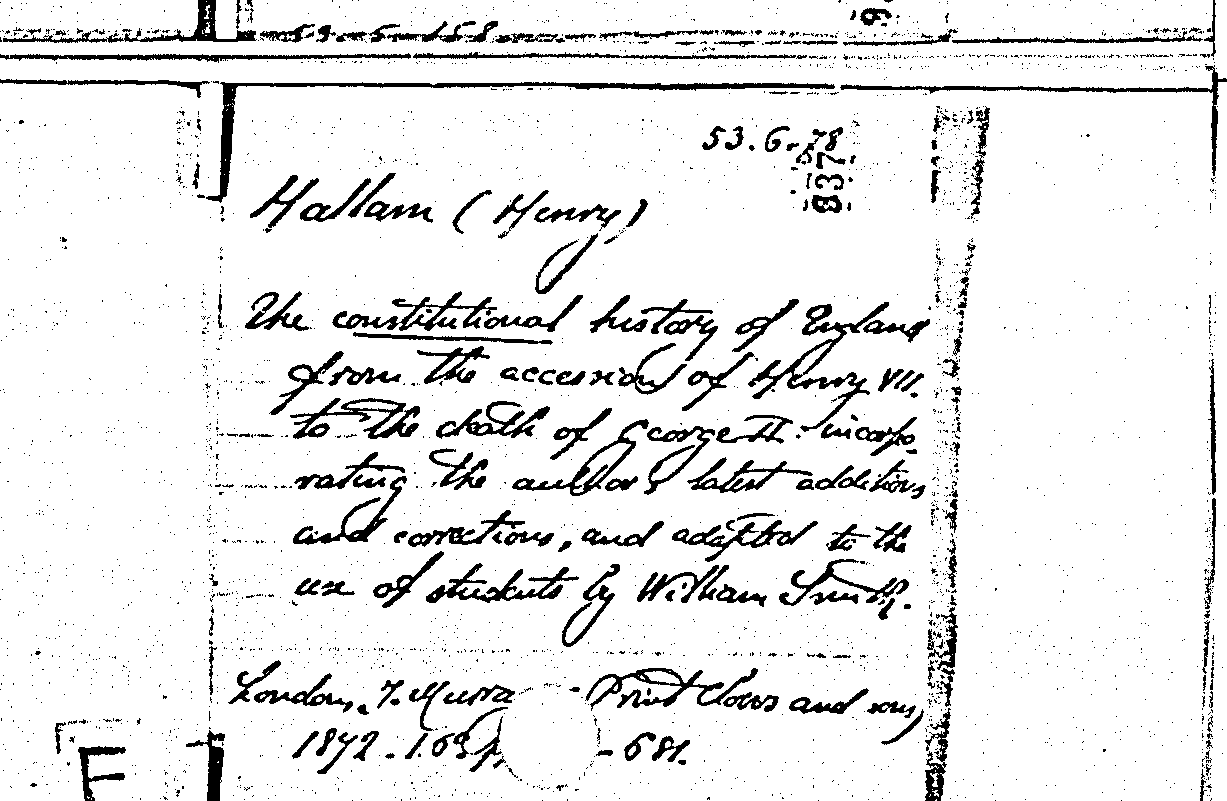 53.5.158
53.6.78
837
Hallam (Henry)
The constitutional history of England
from the accession of Henry VII.
to the death of George II. incorpo-
rating the author's latest additions
and corrections, and adapted to the
use of students by William Smith.
London, J. Murra - Print Clows and sons,
1872 - 1.63 p - 681.
E